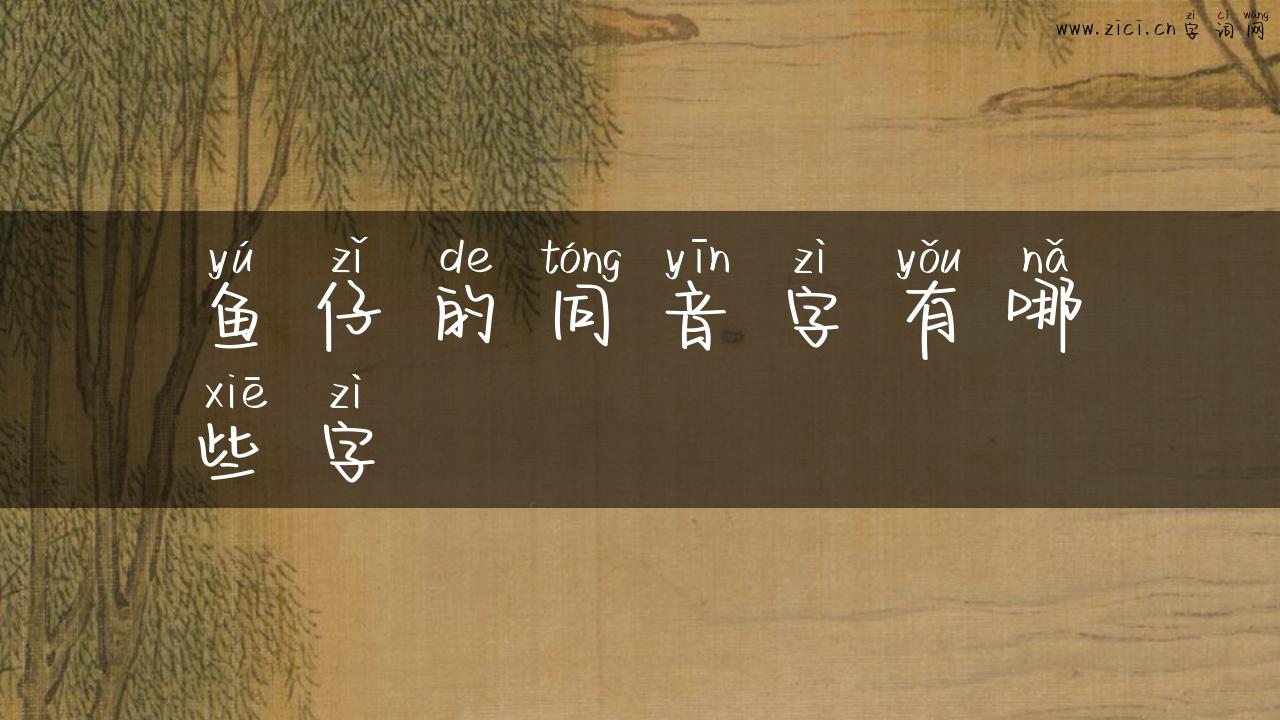 zì cí wǎng
www.zici.cn字词网
yú zǐ de tóng yīn zì yǒu nǎ
鱼仔的同音字有哪
xiē zì
些字